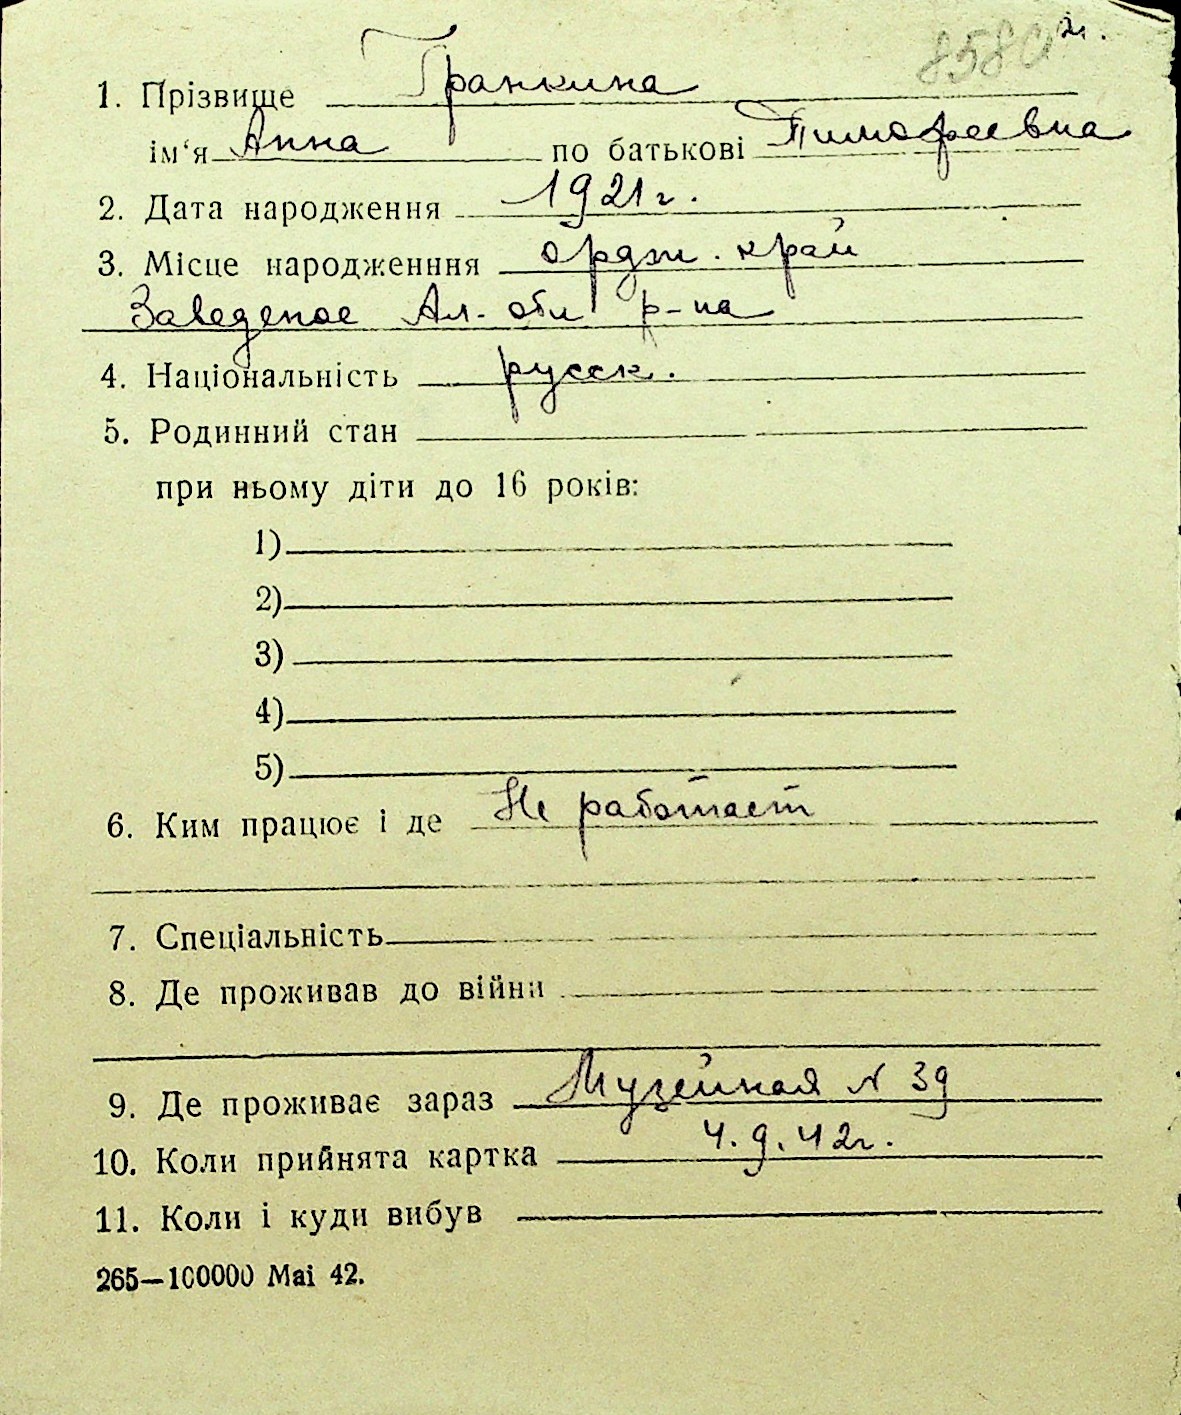 8580
1. Прізвище Гранкина
ім‘я Анна по батькові Тимофеевна
2. Дата народження 1921 г.
3. Місце народженння ордж. край
Заведеное Ал- обл р-на
4. Національність русск.
5. Родинний стан
при ньому діти до 16 років:
1)
2)
3)
4)
5)
6. Ким працює і де Не работает
7. Спеціальність
8. Де проживав до війни
9. Де проживає зараз Музейная N 39
10. Коли прийнята картка 4.9.42г.
11. Коли і куди вибув
265—100000 Mai 42.